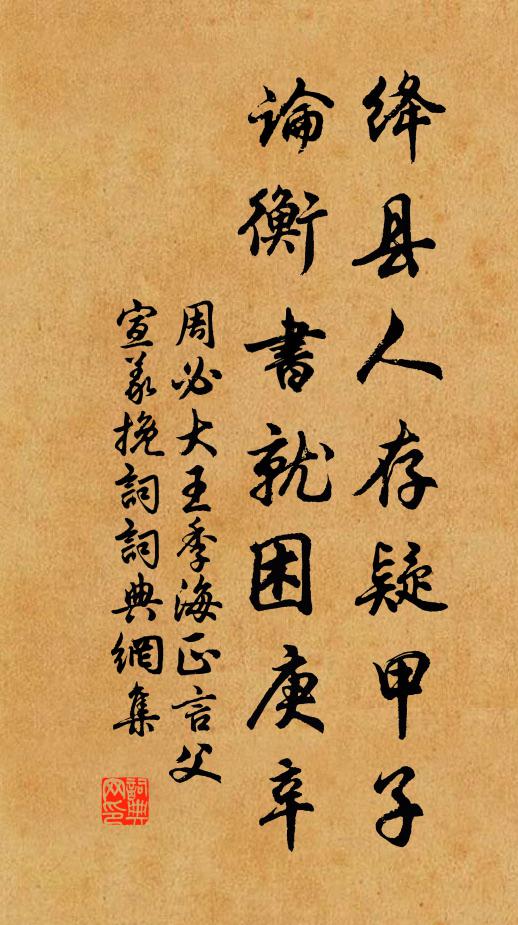 绛县人存疑甲子
论衡書就困庚辛
周必大王季海正言父
宣义挽詞詞典網集
詞典网印